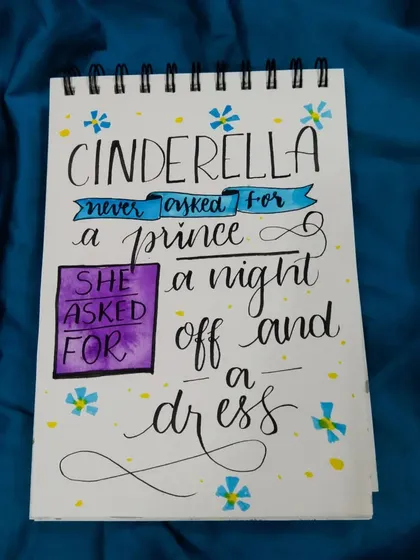 CINDERELLA
never asked for
a prince
SHE
ASKED
FOR
a night
off and
a
dress